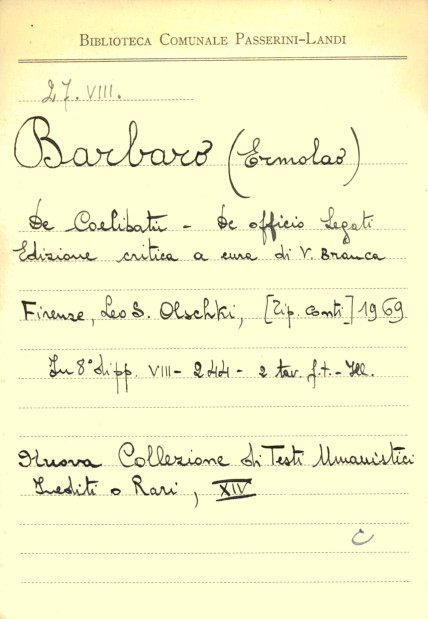 BIBLIOTECA COMUNALE PASSERINI-LANDI
27. VIII.
Barbaro (Ermolao)
De Coelibatu - De officio Legati
Edizione critica a cura di V. Branca
Firenze, Leo S. Olschki, [Tip. Conti] 1969
In 8° di pp. VIII - 244 - 2 tav. f.t. - Ill.
Nuova Collezione di Testi Umanistici
Inediti o Rari, XIV
C